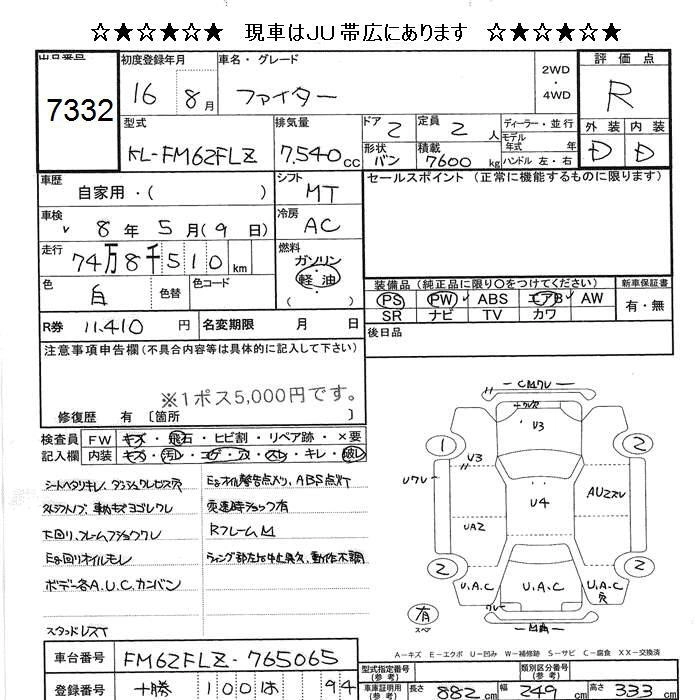 ☆★☆★☆ 現車はJU帯広にあります ☆★☆★☆
出品番号 7332
初度登録年月 16 8月
車名・グレード ファイター
2WD ・ 4WD
評価点 R
外装 D 内装 D
型式 KL-FM62FLZ
排気量 7,540cc
ドア 2 定員 2人
形状 バン 積載 7600kg
ディーラー・並行
モデル年式 年
ハンドル 左・右
車歴 自家用・( )
シフト MT
セールスポイント (正常に機能するものに限ります)
車検 8年 5月(9日)
冷房 AC
走行 74万8千510km
燃料 ガソリン・軽油・( )
色 白 色替 色コード
装備品 (純正品に限り○をつけてください) 新車保証書
PS PW ABS エアB AW 有・無
SR ナビ TV カワ
R券 11,410円 名変期限 月 日
後日品
注意事項申告欄(不具合内容等は具体的に記入して下さい)
※1ポス5,000円です。
修復歴 有 〔箇所 〕
検査員記入欄 FW キズ・飛石・ヒビ割・リペア跡・×要
内装 キズ・汚レ・コゲ・穴・スレ・キレ・破レ
シートヘタリキレ、ダッシュワレビス穴
Egオイル警告点灯、ABS点灯
変速時ショック有
下回り、フレームフショクワレ
RフレームM
Eg回りオイルモレ
ボデー各A.U.C.カンバン
スタッドレスT
CMワレ
U3
1 2
U3
Uワレ
U4
AUZズレ
UA2
2 2
U.A.C U.A.C U.A.C
穴
ワレ
有 スペア
A-キズ E-エクボ U-凹み W-補修跡 S-サビ C-腐食 XX-交換済
車台番号 FM62FLZ-765065
型式指定番号(参考) 類別区分番号(参考)
登録番号 十勝 100 は 94
車庫証明用(参考) 長さ 882cm 幅 249cm 高さ 333cm